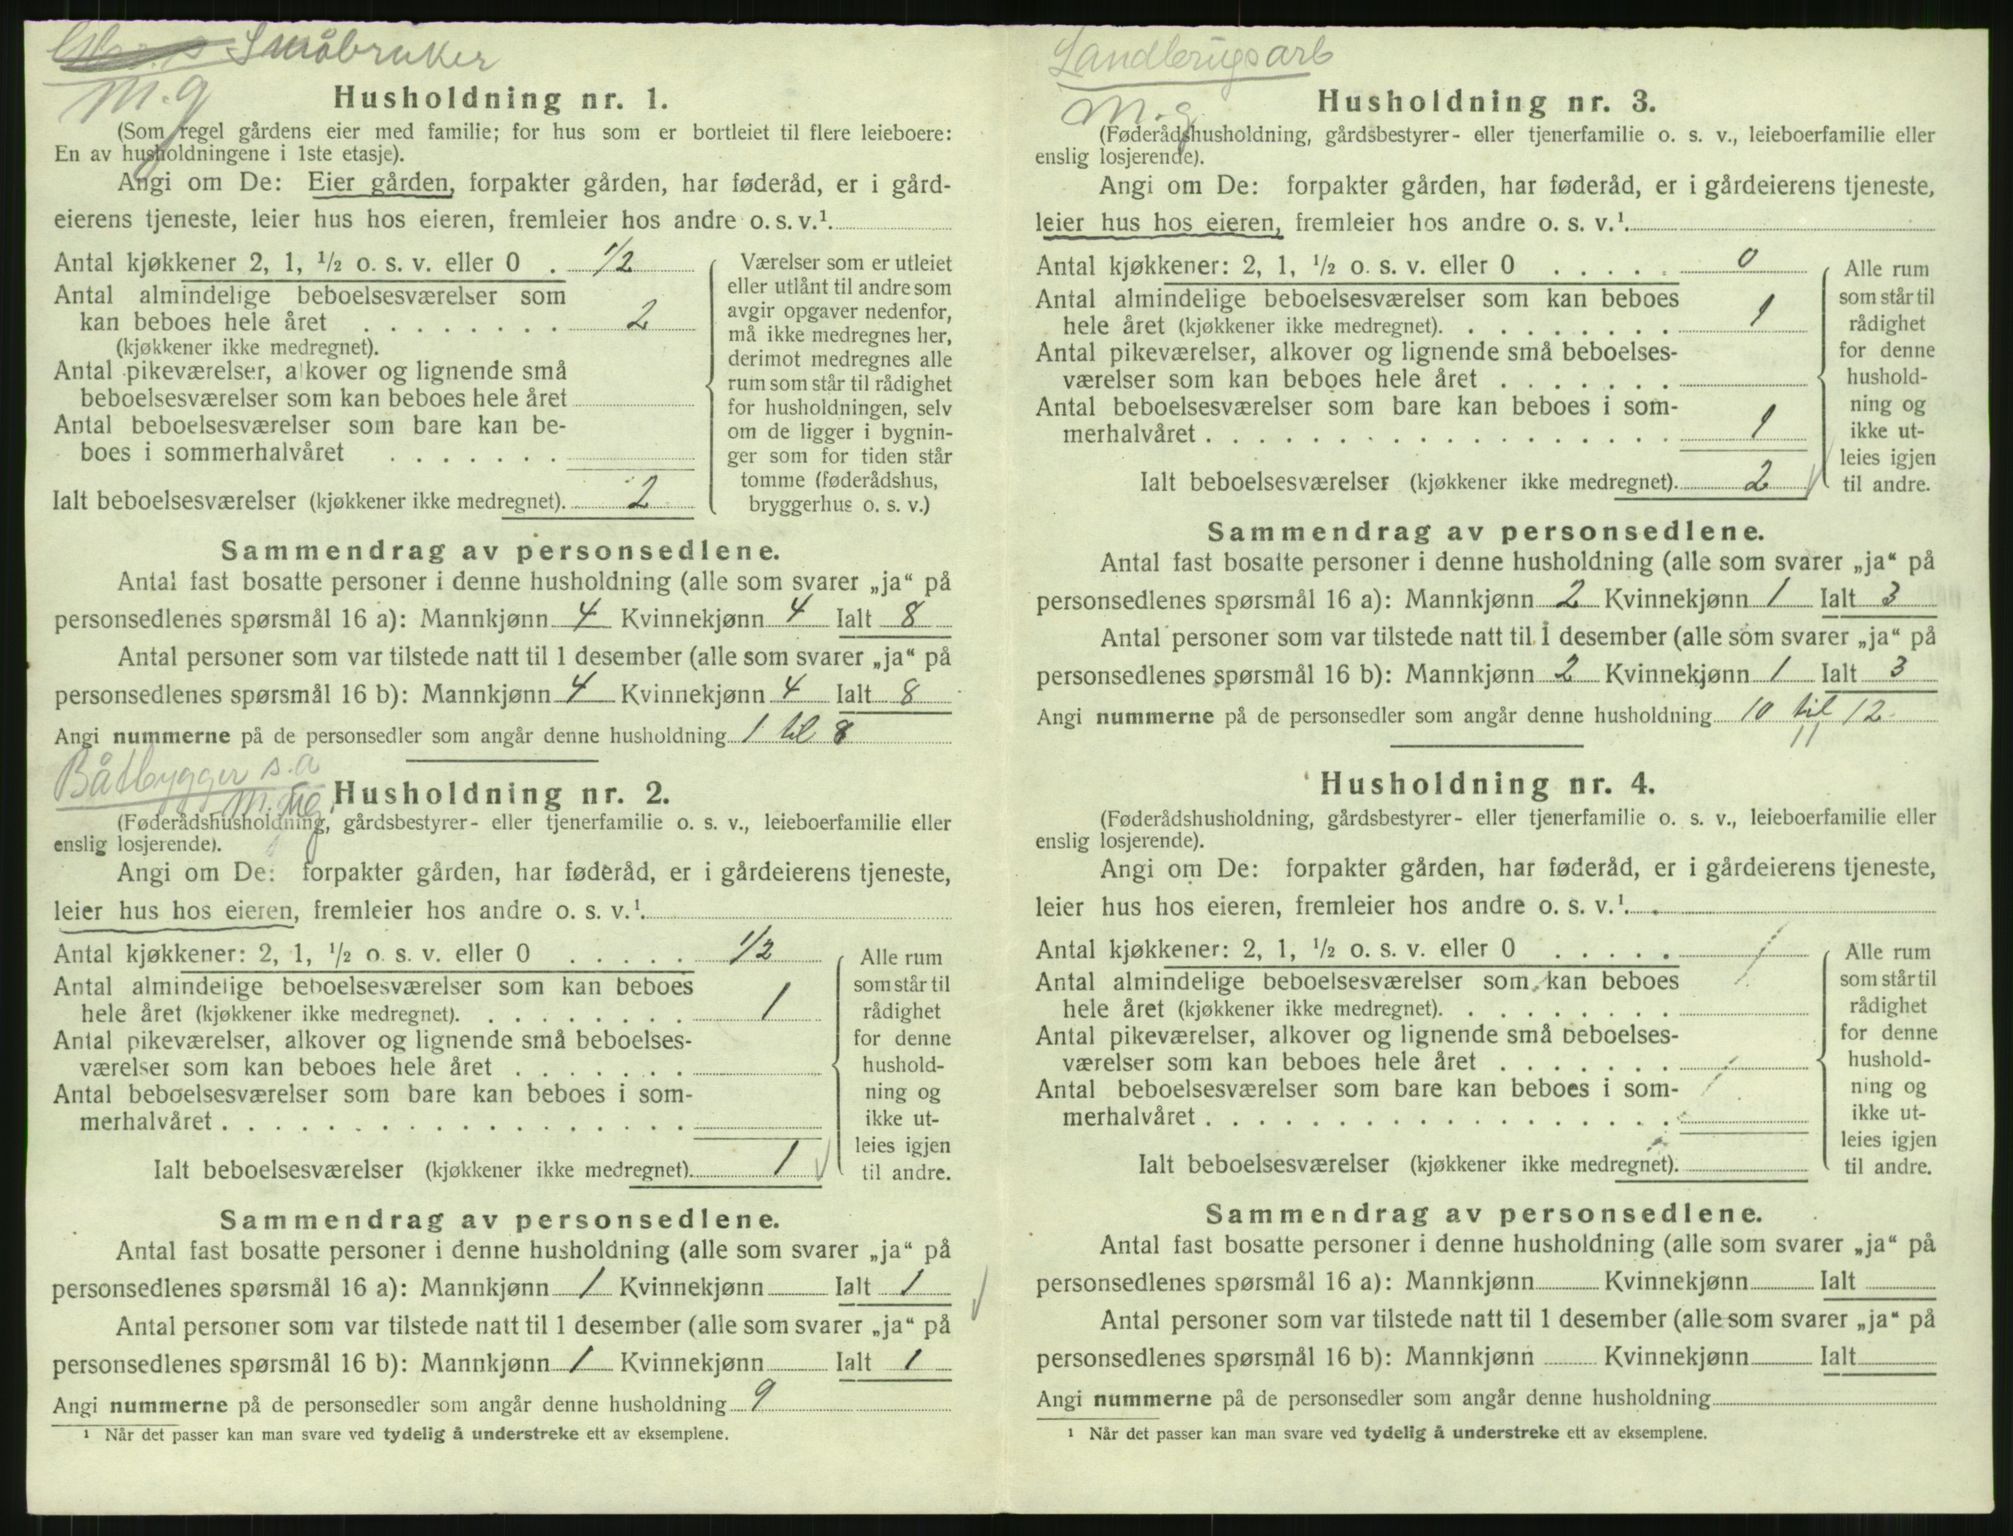 Småbruker
M.g
Husholdning nr. 1.
(Som regel gårdens eier med familie; for hus som er bortleiet til flere leieboere:
En av husholdningene i 1ste etasje).
Angi om De: Eier gården, forpakter gården, har føderåd, er i gård-
eierens tjeneste, leier hus hos eieren, fremleier hos andre o. s. v.¹
Antal kjøkkener 2, 1, ½ o. s. v. eller 0 . 1/2
Antal almindelige beboelsesværelser som
kan beboes hele året . . . . . . . . 2
(kjøkkener ikke medregnet).
Antal pikeværelser, alkover og lignende små
beboelsesværelser som kan beboes hele året
Antal beboelsesværelser som bare kan be-
boes i sommerhalvåret . . . . . . .
Ialt beboelsesværelser (kjøkkener ikke medregnet). 2
Værelser som er utleiet
eller utlånt til andre som
avgir opgaver nedenfor,
må ikke medregnes her,
derimot medregnes alle
rum som står til rådighet
for husholdningen, selv
om de ligger i bygnin-
ger som for tiden står
tomme (føderådshus,
bryggerhus o. s. v.)
Sammendrag av personsedlene.
Antal fast bosatte personer i denne husholdning (alle som svarer „ja“ på
personsedlenes spørsmål 16 a): Mannkjønn 4 Kvinnekjønn 4 Ialt 8
Antal personer som var tilstede natt til 1 desember (alle som svarer „ja“ på
personsedlenes spørsmål 16 b): Mannkjønn 4 Kvinnekjønn 4 Ialt 8
Angi nummerne på de personsedler som angår denne husholdning 1 til 8
Båtbygger s.a
Husholdning nr. 2.
(Føderådshusholdning, gårdsbestyrer- eller tjenerfamilie o. s. v., leieboerfamilie eller
enslig losjerende).
Angi om De: forpakter gården, har føderåd, er i gårdeierens tjeneste,
leier hus hos eieren, fremleier hos andre o. s. v.¹.
Antal kjøkkener: 2, 1, ½ o. s. v. eller 0 . . . . . 1/2
Antal almindelige beboelsesværelser som kan beboes
hele året (kjøkkener ikke medregnet). . . . . . . . . 1
Antal pikeværelser, alkover og lignende små beboelses-
værelser som kan beboes hele året . . . . . . .
Antal beboelsesværelser som bare kan beboes i som-
merhalvåret . . . . . . . . . . . . . . . . . .
Ialt beboelsesværelser (kjøkkener ikke medregnet). 1
Alle rum
som står til
rådighet
for denne
hushold-
ning og
ikke ut-
leies igjen
til andre.
Sammendrag av personsedlene.
Antal fast bosatte personer i denne husholdning (alle som svarer „ja“ på
personsedlenes spørsmål 16 a): Mannkjønn 1 Kvinnekjønn Ialt 1
Antal personer som var tilstede natt til 1 desember (alle som svarer „ja“ på
personsedlenes spørsmål 16 b): Mannkjønn 1 Kvinnekjønn Ialt 1
Angi nummerne på de personsedler som angår denne husholdning 9
¹ Når det passer kan man svare ved tydelig å understreke ett av eksemplene.
Landbrugsarb
M.g
Husholdning nr. 3.
(Føderådshusholdning, gårdsbestyrer- eller tjenerfamilie o. s. v., leieboerfamilie eller
enslig losjerende).
Angi om De: forpakter gården, har føderåd, er i gårdeierens tjeneste,
leier hus hos eieren, fremleier hos andre o. s. v.¹.
Antal kjøkkener: 2, 1, ½ o. s. v. eller 0 . . . . . 0
Antal almindelige beboelsesværelser som kan beboes
hele året (kjøkkener ikke medregnet). . . . . . . . . 1
Antal pikeværelser, alkover og lignende små beboelses-
værelser som kan beboes hele året . . . . . . .
Antal beboelsesværelser som bare kan beboes i som-
merhalvåret . . . . . . . . . . . . . . . . . . 1
Ialt beboelsesværelser (kjøkkener ikke medregnet). 2
Alle rum
som står til
rådighet
for denne
hushold-
ning og
ikke ut-
leies igjen
til andre.
Sammendrag av personsedlene.
Antal fast bosatte personer i denne husholdning (alle som svarer „ja“ på
personsedlenes spørsmål 16 a): Mannkjønn 2 Kvinnekjønn 1 Ialt 3
Antal personer som var tilstede natt til 1 desember (alle som svarer „ja“ på
personsedlenes spørsmål 16 b): Mannkjønn 2 Kvinnekjønn 1 Ialt 3
Angi nummerne på de personsedler som angår denne husholdning 10 til 12
Husholdning nr. 4.
(Føderådshusholdning, gårdsbestyrer- eller tjenerfamilie o. s. v., leieboerfamilie eller
enslig losjerende).
Angi om De: forpakter gården, har føderåd, er i gårdeierens tjeneste,
leier hus hos eieren, fremleier hos andre o. s. v.¹.
Antal kjøkkener: 2, 1, ½ o. s. v. eller 0 . . . . .
Antal almindelige beboelsesværelser som kan beboes
hele året (kjøkkener ikke medregnet). . . . . . . . .
Antal pikeværelser, alkover og lignende små beboelses-
værelser som kan beboes hele året . . . . . . .
Antal beboelsesværelser som bare kan beboes i som-
merhalvåret . . . . . . . . . . . . . . . . . .
Ialt beboelsesværelser (kjøkkener ikke medregnet).
Alle rum
som står til
rådighet
for denne
hushold-
ning og
ikke ut-
leies igjen
til andre.
Sammendrag av personsedlene.
Antal fast bosatte personer i denne husholdning (alle som svarer „ja“ på
personsedlenes spørsmål 16 a): Mannkjønn Kvinnekjønn Ialt
Antal personer som var tilstede natt til 1 desember (alle som svarer „ja“ på
personsedlenes spørsmål 16 b): Mannkjønn Kvinnekjønn Ialt
Angi nummerne på de personsedler som angår denne husholdning
¹ Når det passer kan man svare ved tydelig å understreke ett av eksemplene.